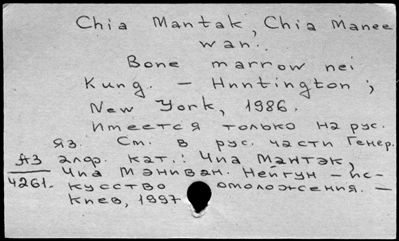 Chia Mantak, Chia Manee
wan..
Bone marrow nei
Kung. – Hnntington ;
New York, 1986.
Имеется только на рус.
яз. См. в рус. части Генер.
А3 алф. кат.: Чиа Мантэк,
4261. Чиа Мэниван. Нейгун – ис-
кусство омоложения. –
Киев, 1997